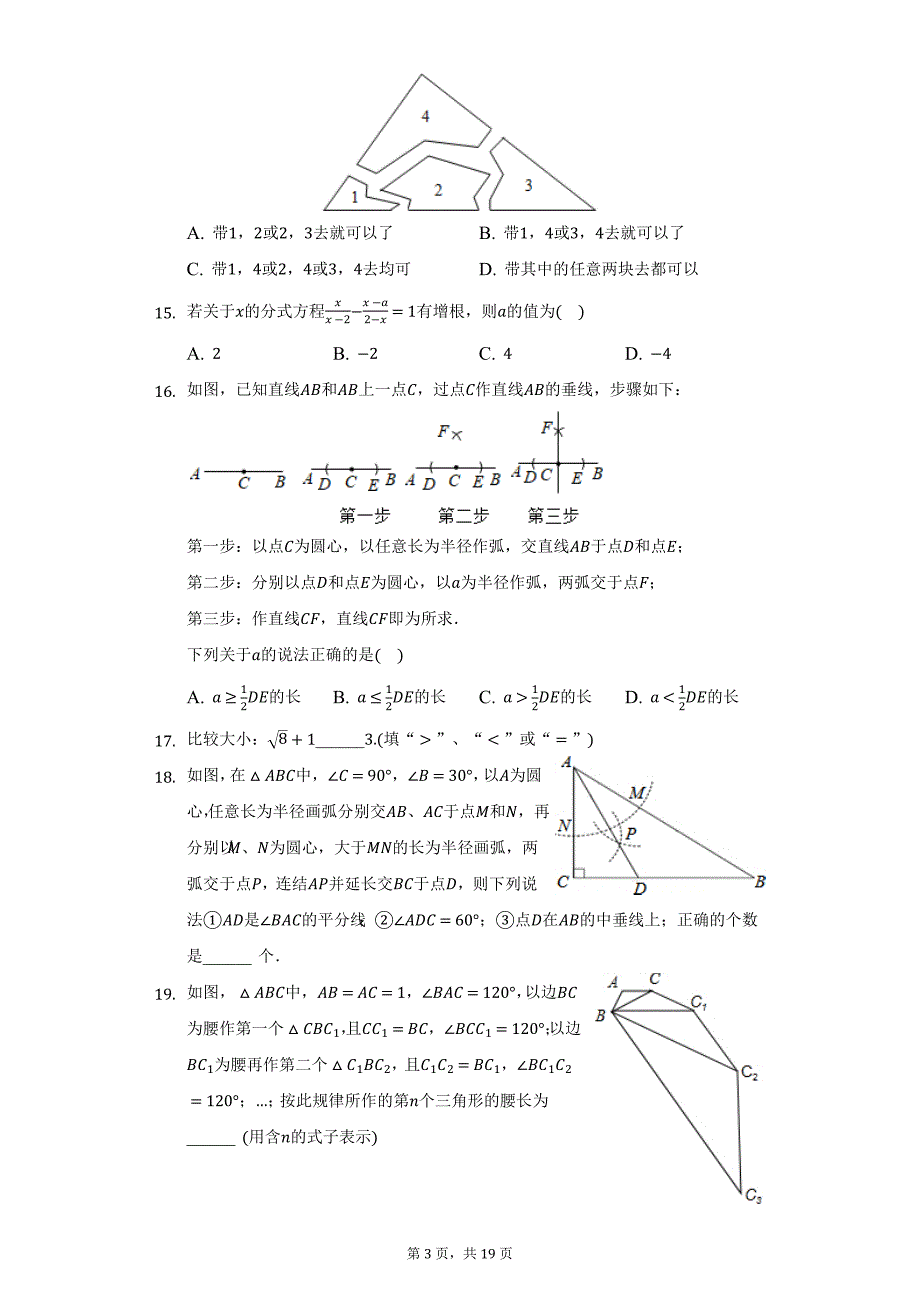 4
1
2
3
A. 带1，2或2，3去就可以了 B. 带1，4或3，4去就可以了
C. 带1，4或2，4或3，4去均可 D. 带其中的任意两块去都可以
15. 若关于x的分式方程x/(x−2)−(x−a)/(2−x)=1有增根，则a的值为( )
A. 2 B. −2 C. 4 D. −4
16. 如图，已知直线AB和AB上一点C，过点C作直线AB的垂线，步骤如下：
F F
A C B A D C E B A D C E B A D C E B
第一步 第二步 第三步
第一步：以点C为圆心，以任意长为半径作弧，交直线AB于点D和点E；
第二步：分别以点D和点E为圆心，以a为半径作弧，两弧交于点F；
第三步：作直线CF，直线CF即为所求．
下列关于a的说法正确的是( )
A. a≥1/2DE的长 B. a≤1/2DE的长 C. a>1/2DE的长 D. a<1/2DE的长
17. 比较大小：√8+1______3.(填“>”、“<”或“=”)
18. 如图，在△ABC中，∠C=90°，∠B=30°，以A为圆
心，任意长为半径画弧分别交AB、AC于点M和N，再
分别以M、N为圆心，大于MN的长为半径画弧，两
弧交于点P，连结AP并延长交BC于点D，则下列说
法①AD是∠BAC的平分线；②∠ADC=60°；③点D在AB的中垂线上；正确的个数
是______ 个．
A
M
N
P
C D B
19. 如图，△ABC中，AB=AC=1，∠BAC=120°，以边BC
为腰作第一个△CBC₁，且CC₁=BC，∠BCC₁=120°；以边
BC₁为腰再作第二个△C₁BC₂，且C₁C₂=BC₁，∠BC₁C₂
=120°；…；按此规律所作的第n个三角形的腰长为
______ (用含n的式子表示)
A C
B C₁
C₂
C₃
第 3 页，共 19 页